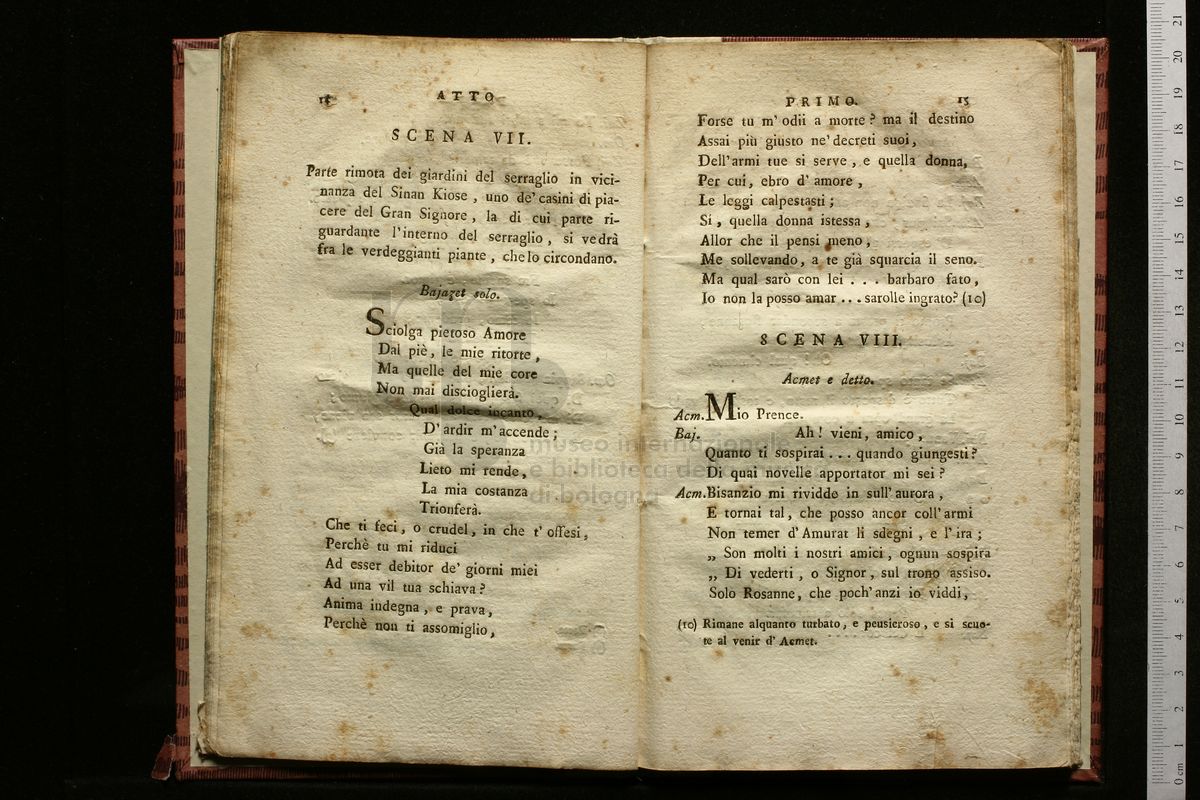 ATTO
SCENA VII.
Parte rimota dei giardini del serraglio in vici-
nanza del Sinan Kiose, uno de' casini di pia-
cere del Gran Signore, la di cui parte ri-
guardante l'interno del serraglio, si vedrà
fra le verdeggianti piante, che lo circondano.
Bajazet solo.
Sciolga pietoso Amore
Dal piè, le mie ritorte,
Ma quelle del mie core
Non mai discioglierà.
Qual dolce incanto,
D'ardir m'accende;
Già la speranza
Lieto mi rende,
La mia costanza
Trionferà.
Che ti feci, o crudel, in che t'offesi,
Perchè tu mi riduci
Ad esser debitor de' giorni miei
Ad una vil tua schiava?
Anima indegna, e prava,
Perchè non ti assomiglio,
PRIMO. 15
Forse tu m'odii a morte? ma il destino
Assai più giusto ne' decreti suoi,
Dell'armi tue si serve, e quella donna,
Per cui, ebro d'amore,
Le leggi calpestasti;
Sí, quella donna istessa,
Allor che il pensi meno,
Me sollevando, a te già squarcia il seno.
Ma qual sarò con lei . . . barbaro fato,
Io non la posso amar ... sarolle ingrato? (10)
SCENA VIII.
Acmet e detto.
Acm. Mio Prence.
Baj. Ah! vieni, amico,
Quanto ti sospirai ... quando giungesti?
Di quai novelle apportator mi sei?
Acm. Bisanzio mi rividde in sull'aurora,
E tornai tal, che posso ancor coll'armi
Non temer d'Amurat li sdegni, e l'ira;
„ Son molti i nostri amici, ognun sospira
„ Di vederti, o Signor, sul trono assiso.
Solo Rosanne, che poch'anzi io viddi,
(10) Rimane alquanto turbato, e peusieroso, e si scuo-
te al venir d'Acmet.
museo internazionale
e biblioteca de
di bologna